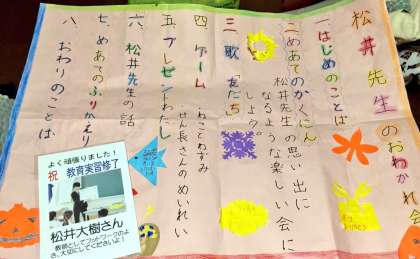 松井先生のおわかれ会
一、はじめのことば
二、めあてのかくにん
松井先生の思い出に
なるような楽しい会に
しよう。
三、歌「友だち」
四、ゲーム ・ねことねずみ
・せん長さんのめいれい
五、プレゼントわたし
六、松井先生の話
七、めあてのふりかえり
八、おわりのことば
よく頑張りました!
祝 教育実習修了
松井大樹さん
教師としてフットワークのよ
さ、大切にしてくださいよ!